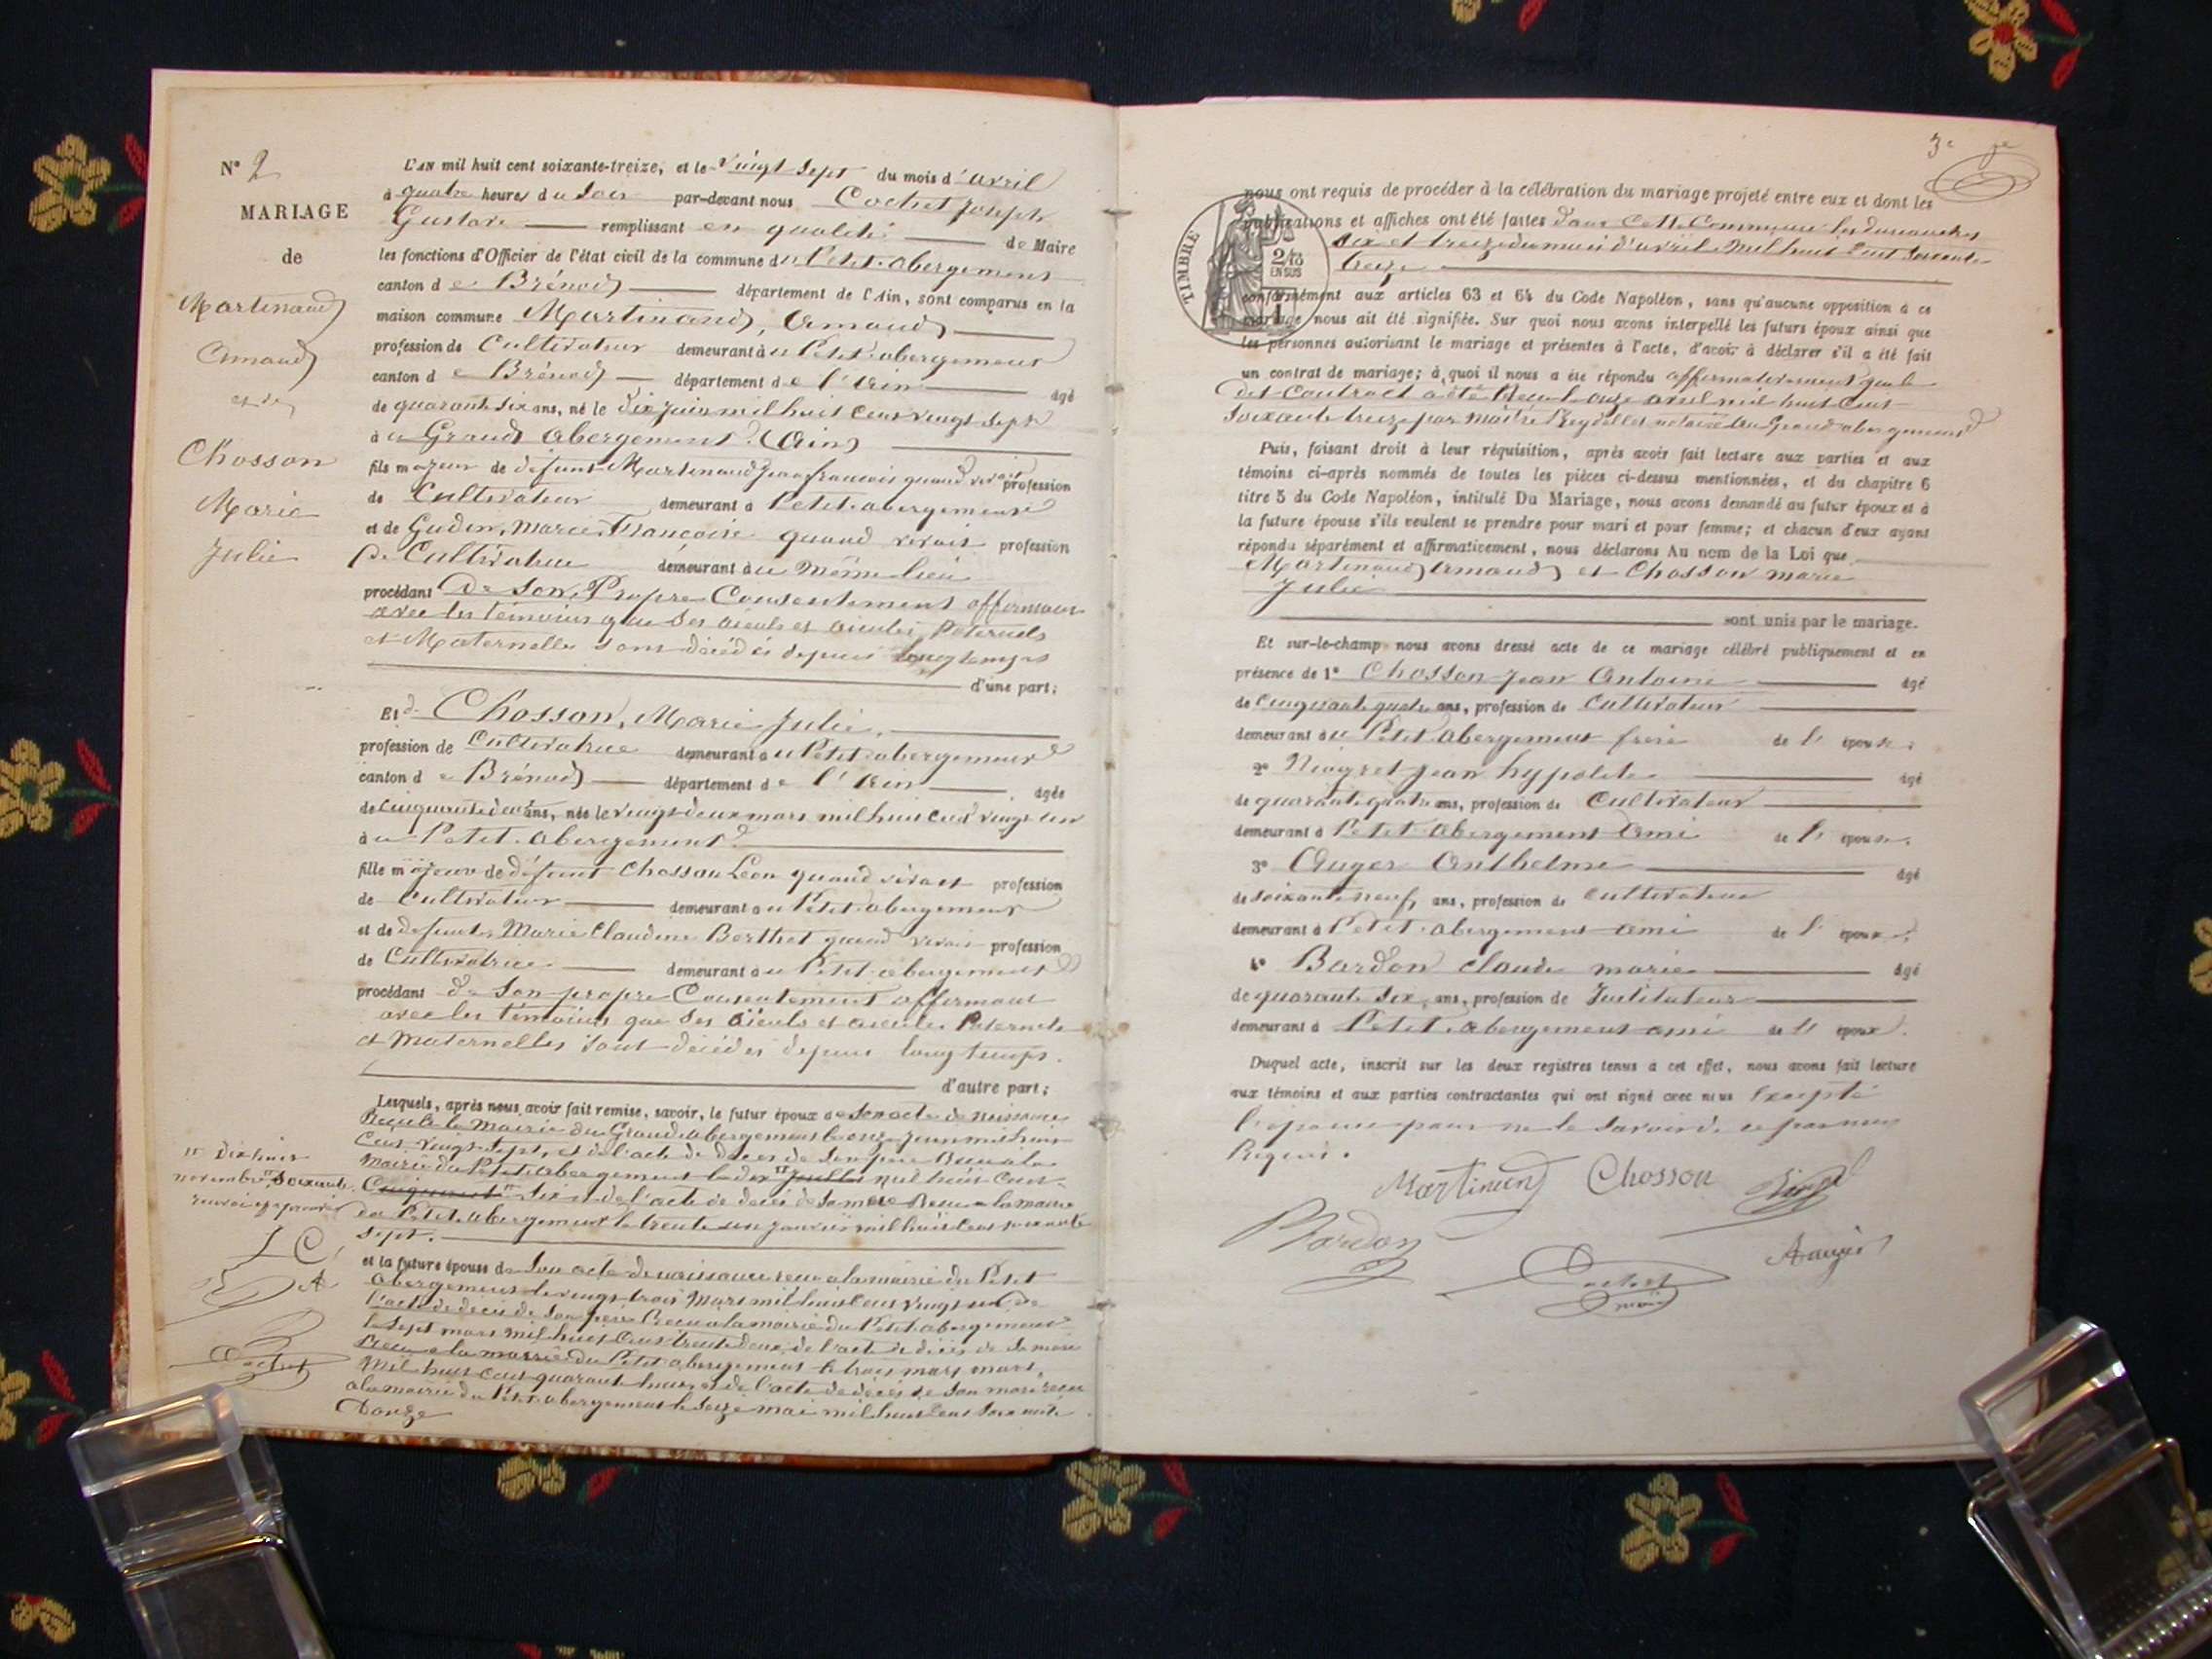 N° 2
MARIAGE
de
Martinand
Armand
et de
Chosson
Marie
Julie
L'AN mil huit cent soixante-treize, et le vingt sept du mois d'avril
à quatre heures du soir par-devant nous Cochet Joseph
Gustave remplissant en qualité de Maire
les fonctions d'Officier de l'état civil de la commune du Petit abergement
canton de Brénod département de l'Ain, sont comparus en la
maison commune Martinand, Armand
profession de Cultivateur demeurant au Petit abergement
canton de Brénod département de l'Ain âgé
de quarante six ans, né le dix juin mil huit cent vingt sept
à u Grand abergement (Ain)
fils majeur de défunt Martinand Jean françois quand vivait profession
de Cultivateur demeurant a Petit abergement
et de Gudin, Marie Françoise quand vivait profession
de Cultivatrice demeurant au même lieu
procédant de son Propre Consentement affirmant
avec les témoins que ses aïeuls et aïeules Paternels
et Maternelles sont décédés depuis longtemps
d'une part;
Et Chosson, Marie Julie,
profession de Cultivatrice demeurant au Petit abergement
canton de Brénod département de l'Ain âgée
de Cinquante deux ans, née le vingt deux mars mil huit cent vingt un
à u Petit abergement
fille majeure de défunt Chosson Léon quand vivait profession
de Cultivateur demeurant au Petit abergement
et de defunte Marie Claudine Berthet quand vivait profession
de Cultivatrice demeurant au Petit abergement
procédant de son propre Consentement affirmant
avec les témoins que ses aïeuls et aïeules Paternels
et Maternelles sont décédés depuis longtemps.
d'autre part;
Lesquels, après nous avoir fait remise, savoir, le futur époux de son acte de naissance
Reçu à la Mairie du Grand abergement le onze juin mil huit
Cent vingt sept, et de l'acte de décès de son père Reçu à la
Mairie du Petit abergement le dix Juillet mil huit cent
Cinquante six et de l'acte de décès de sa mère Reçu a la mairie
du Petit abergement le trente un janvier mil huit cent soixante
sept.
novembre soixante
J C
A
Cochet
et la future épouse de son acte de naissance reçu a la mairie du Petit
abergement le vingt trois Mars mil huit cent vingt un, de
l'acte de décès de son père Reçu a la mairie du Petit abergement
le sept mars mil huit cent trente deux, de l'acte de décès de sa mère
Reçu a la mairie du Petit abergement le trois mars mars
Mil huit cent quarante huit, et de l'acte de décès de son mari reçu
a la mairie du Petit abergement le seize mai mil huit cent soixante
Douze
3e
TIMBRE
2/10
EN SUS
nous ont requis de procéder à la célébration du mariage projeté entre eux et dont les
publications et affiches ont été faites dans cette Commune les dimanches
six et treize du mois d'avril mil huit cent soixante
treize
conformément aux articles 63 et 64 du Code Napoléon, sans qu'aucune opposition à ce
mariage nous ait été signifiée. Sur quoi nous avons interpellé les futurs époux ainsi que
les personnes autorisant le mariage et présentes à l'acte, d'avoir à déclarer s'il a été fait
un contrat de mariage; à quoi il nous a été répondu affirmativement que le
dit Contract a été Reçu le onze avril mil huit cent
soixante treize par maître Reydellet notaire au Grand abergement
Puis, faisant droit à leur réquisition, après avoir fait lecture aux parties et aux
témoins ci-après nommés de toutes les pièces ci-dessus mentionnées, et du chapitre 6
titre 5 du Code Napoléon, intitulé Du Mariage, nous avons demandé au futur époux et à
la future épouse s'ils veulent se prendre pour mari et pour femme; et chacun d'eux ayant
répondu séparément et affirmativement, nous déclarons Au nom de la Loi que
Martinand Armand et Chosson marie
Julie
sont unis par le mariage.
Et sur-le-champ nous avons dressé acte de ce mariage célébré publiquement et en
présence de 1° Chosson Jean Antoine âgé
de Cinquante quatre ans, profession de Cultivateur
demeurant au Petit abergement frère de l' épouse.
2° Niogret Jean hypolite âgé
de quarante quatre ans, profession de Cultivateur
demeurant à Petit abergement ami de l' épouse.
3° Auger Anthelme âgé
de soixante neuf ans, profession de Cultivateur
demeurant à Petit abergement ami de l' époux
4° Bardon claude marie âgé
de quarante six ans, profession de Instituteur
demeurant à Petit abergement ami de l' époux.
Duquel acte, inscrit sur les deux registres tenus à cet effet, nous avons fait lecture
aux témoins et aux parties contractantes qui ont signé avec nous Excepté
l'épouse pour ne le savoir de ce par nous
Requis.
Martinand Chosson
Bardon
Cochet
maire
Augier